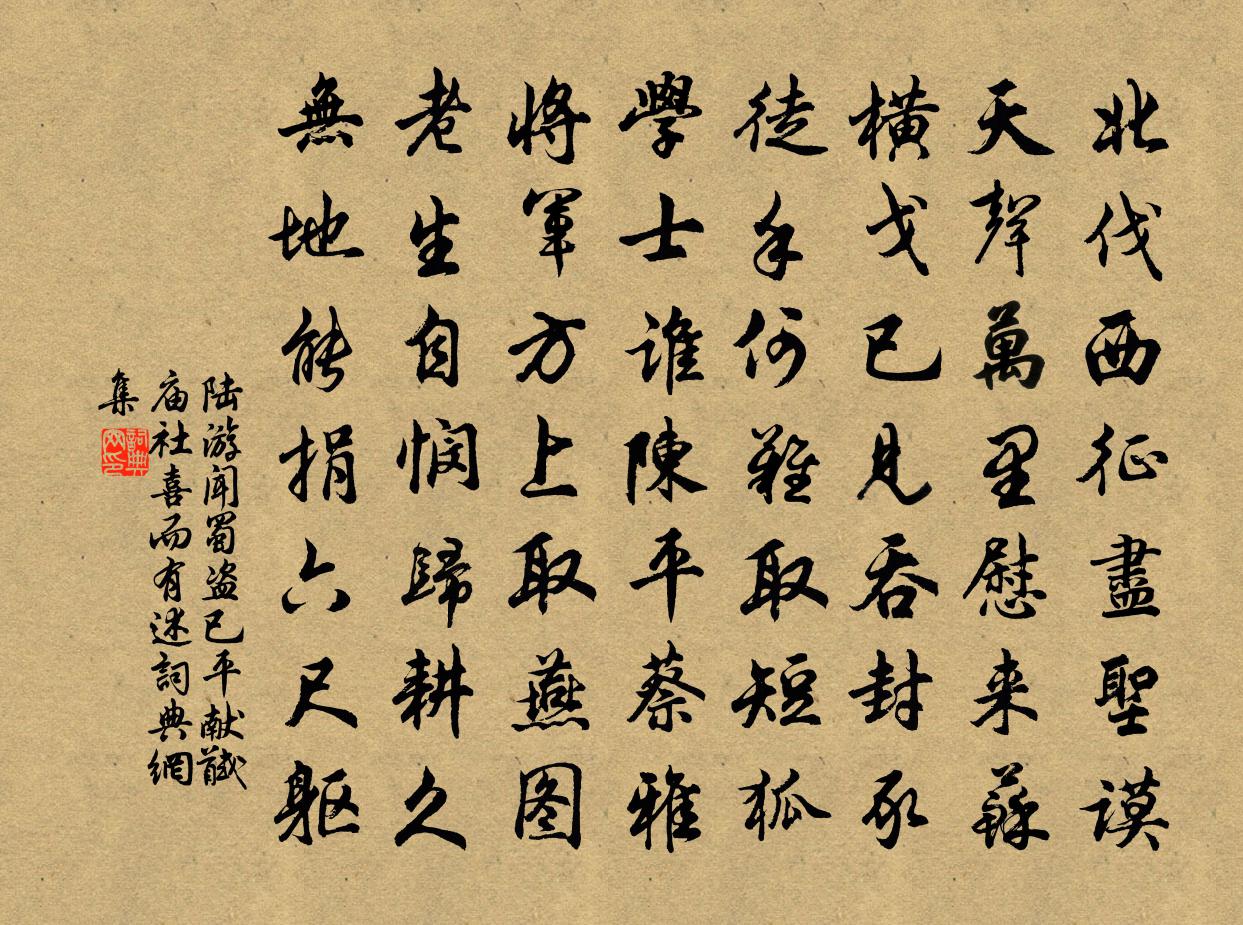 北伐西征盡聖謨
天聲萬里慰来蘇
横戈已見吞封豕
徒手何難取短狐
學士誰陳平蔡雅
將軍方上取燕图
老生自悯歸耕久
無地能捐六尺軀
陆游闻蜀盗已平献馘
庙社喜而有述詞典網
集
詞典
网印